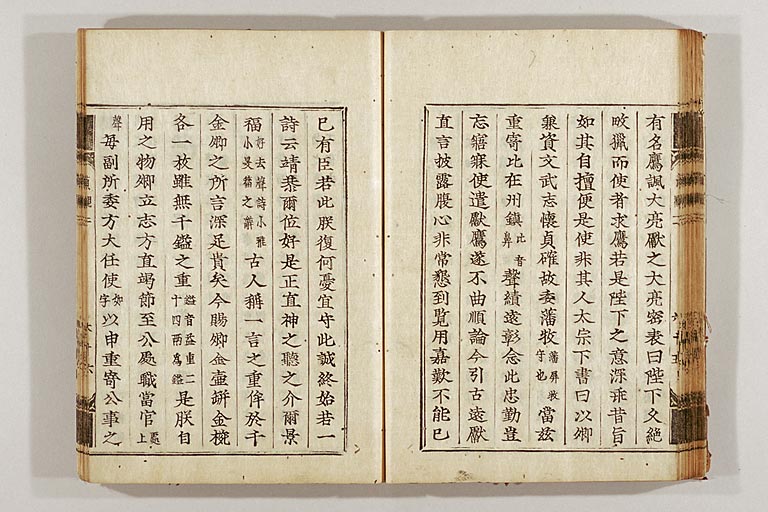 有名鷹諷大亮獻之大亮密表曰陛下久絶
畋獵而使者求鷹若是陛下之意深乖昔旨
如其自擅便是使非其人太宗下書曰以卿
兼資文武志懷貞確故委藩牧藩屏牧守也當茲
重寄比在州鎮比音鼻聲績遠彰念此忠勤豈
忘寤寐使遣獻鷹遂不曲順論今引古遠獻
直言披露腹心非常懇到覧用嘉歎不能已
已有臣若此朕復何憂宜守此誠終始若一
詩云靖恭爾位好是正直神之聽之介爾景
福好去聲詩小雅小旻篇之辭古人稱一言之重侔於千
金卿之所言深足貴矣今賜卿金壺缾金椀
各一枚雖無千鎰之重鎰音益重二十四兩爲鎰是朕自
用之物卿立志方直竭節至公處職當官處上
聲每副所委方大任使如字以申重寄公事之